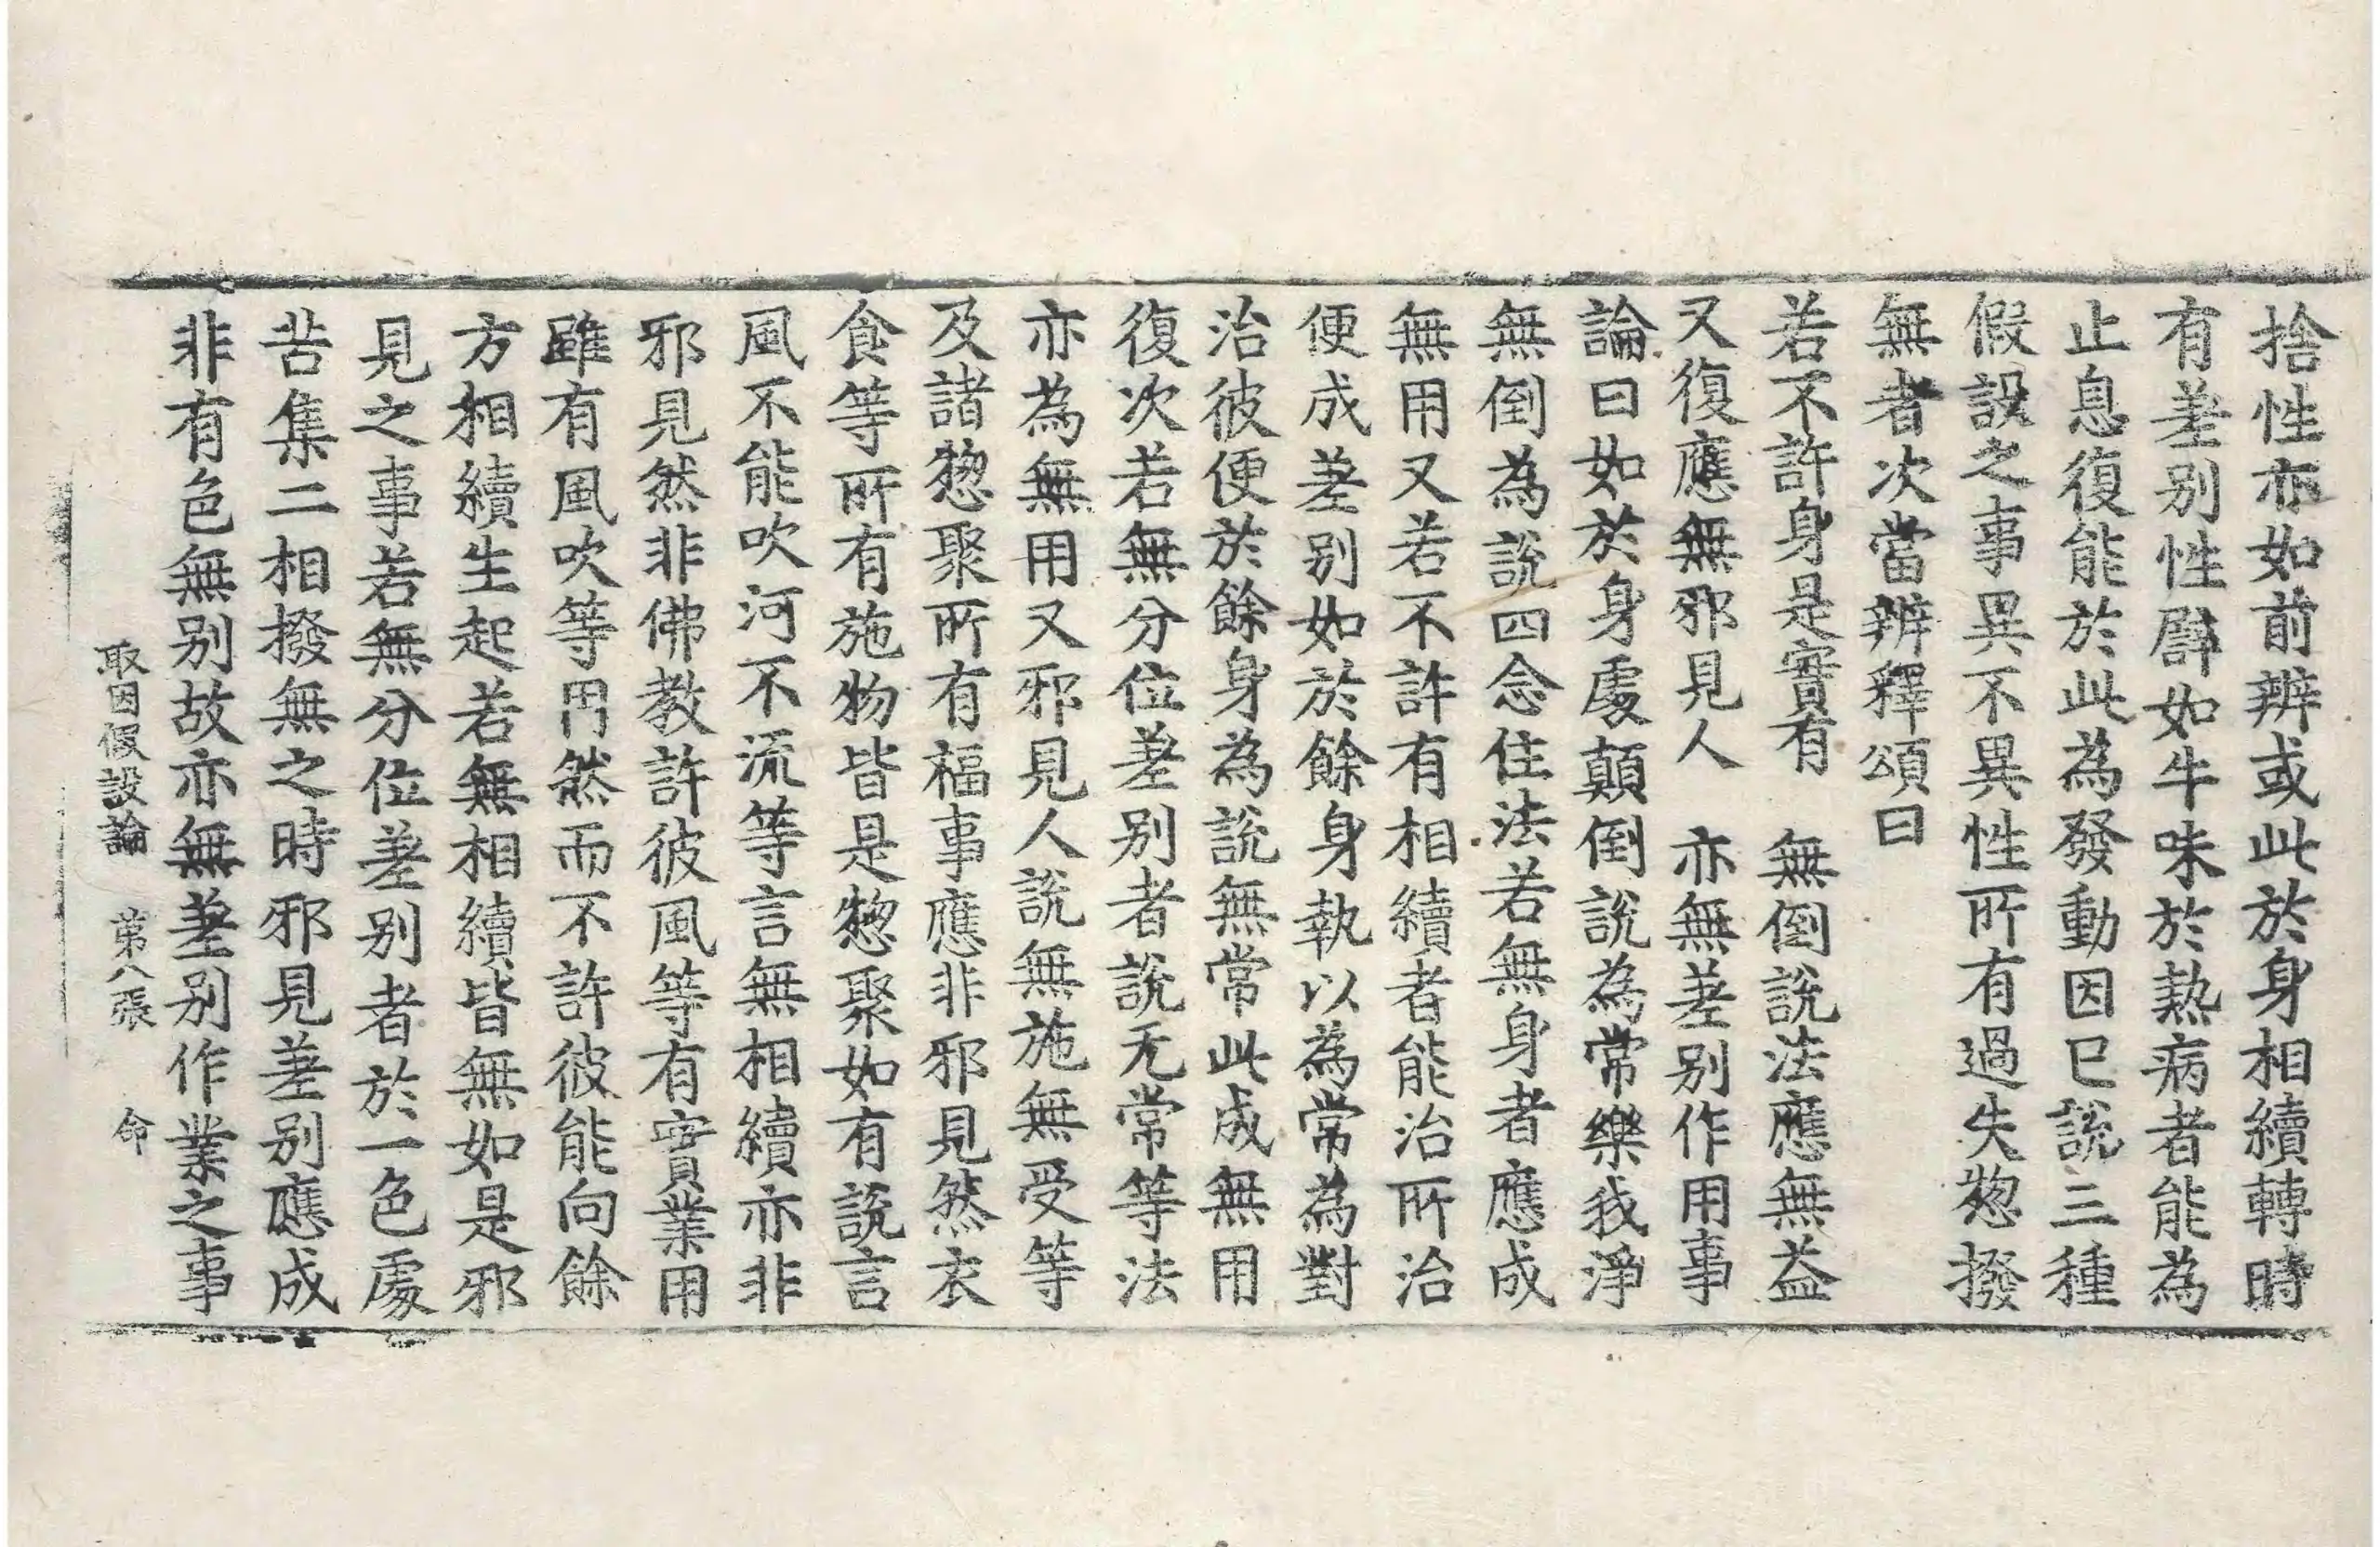 捨性亦如前辨或此於身相續轉時
有差别性辟如牛味於熱病者能為
止息復能於此為發動因已說三種
假設之事異不異性所有過失惣撥
無者次當辨釋頌曰
若不許身是實有　無倒說法應無益
又復應無邪見人　亦無差别作用事
論曰如於身處顛倒說為常樂我淨
無倒為說四念住法若無身者應成
無用又若不許有相續者能治所治
便成差别如於餘身執以為常為對
治彼便於餘身為說無常此成無用
復次若無分位差别者說无常等法
亦為無用又邪見人說無施無受等
及諸惣聚所有福事應非邪見然衣
食等所有施物皆是惣聚如有說言
風不能吹河不流等言無相續亦非
邪見然非佛教許彼風等有實業用
雖有風吹等門然而不許彼能向餘
方相續生起若無相續皆無如是邪
見之事若無分位差别者於一色處
苦集二相撥無之時邪見差别應成
非有色無别故亦無差别作業之事
取因假設論　第八張　命